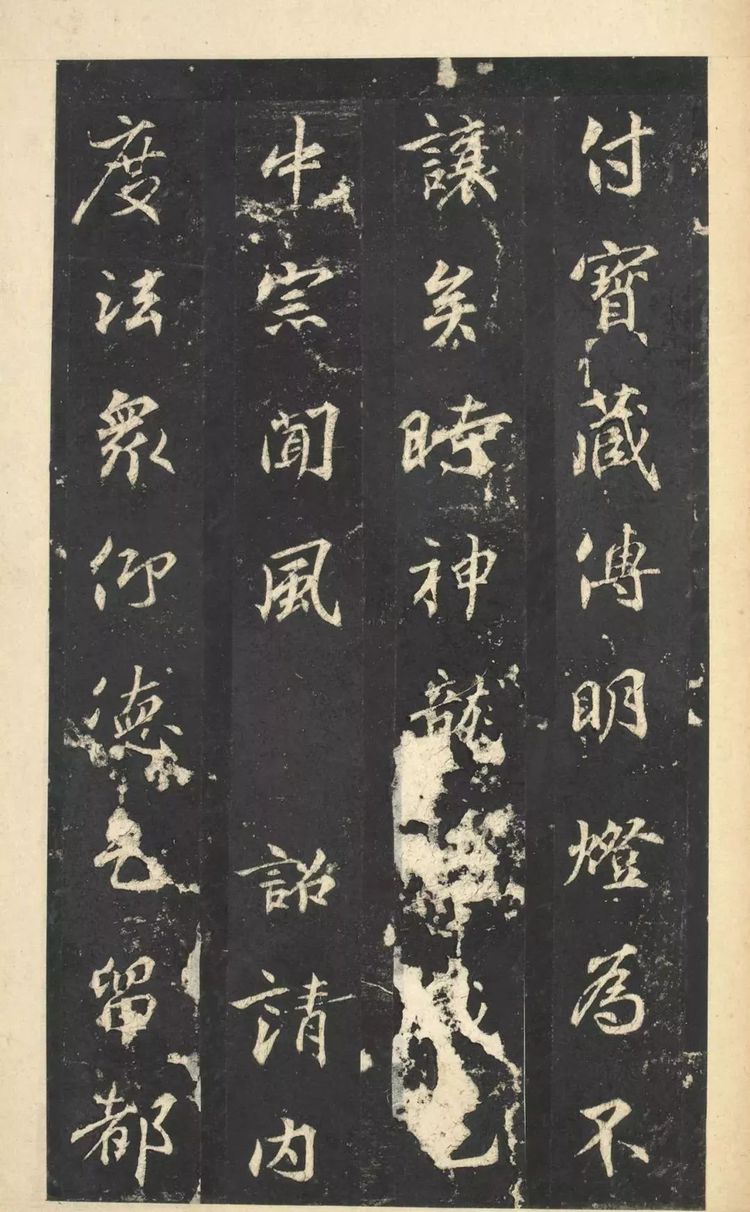 付寶藏傳明燈為不
讓矣時神龍
中宗聞風 詔請内
度法衆仰德乞留都